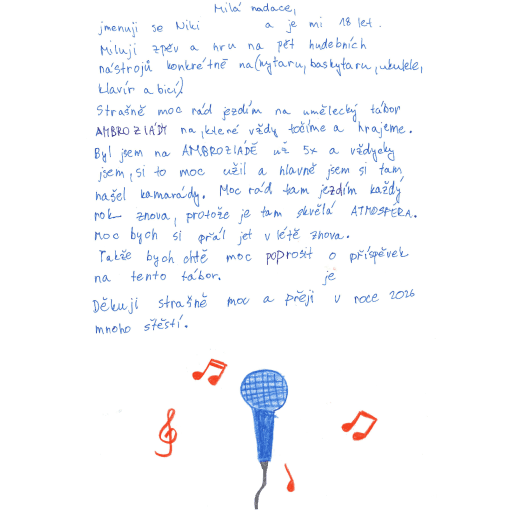 Milá nadace,
jmenuji se Niki a je mi 18 let.
Miluji zpěv a hru na pět hudebních
nástrojů konkrétně na (kytaru, baskytaru, ukulele,
klavír a bicí)
Strašně moc rád jezdím na umělecký tábor
AMBROZIÁDY na, které vždy točíme a hrajeme.
Byl jsem na AMBROZIÁDĚ už 5x a vždycky
jsem, si to moc užil a hlavně jsem si tam
našel kamarády. Moc rád tam jezdím každý
rok znova, protože je tam skvělá ATMOSFÉRA.
Moc bych si přál jet v létě znova.
Takže bych chtě moc poprosit o příspěvek
na tento tábor. je
Děkuji strašně moc a přeji v roce 2026
mnoho štěstí.